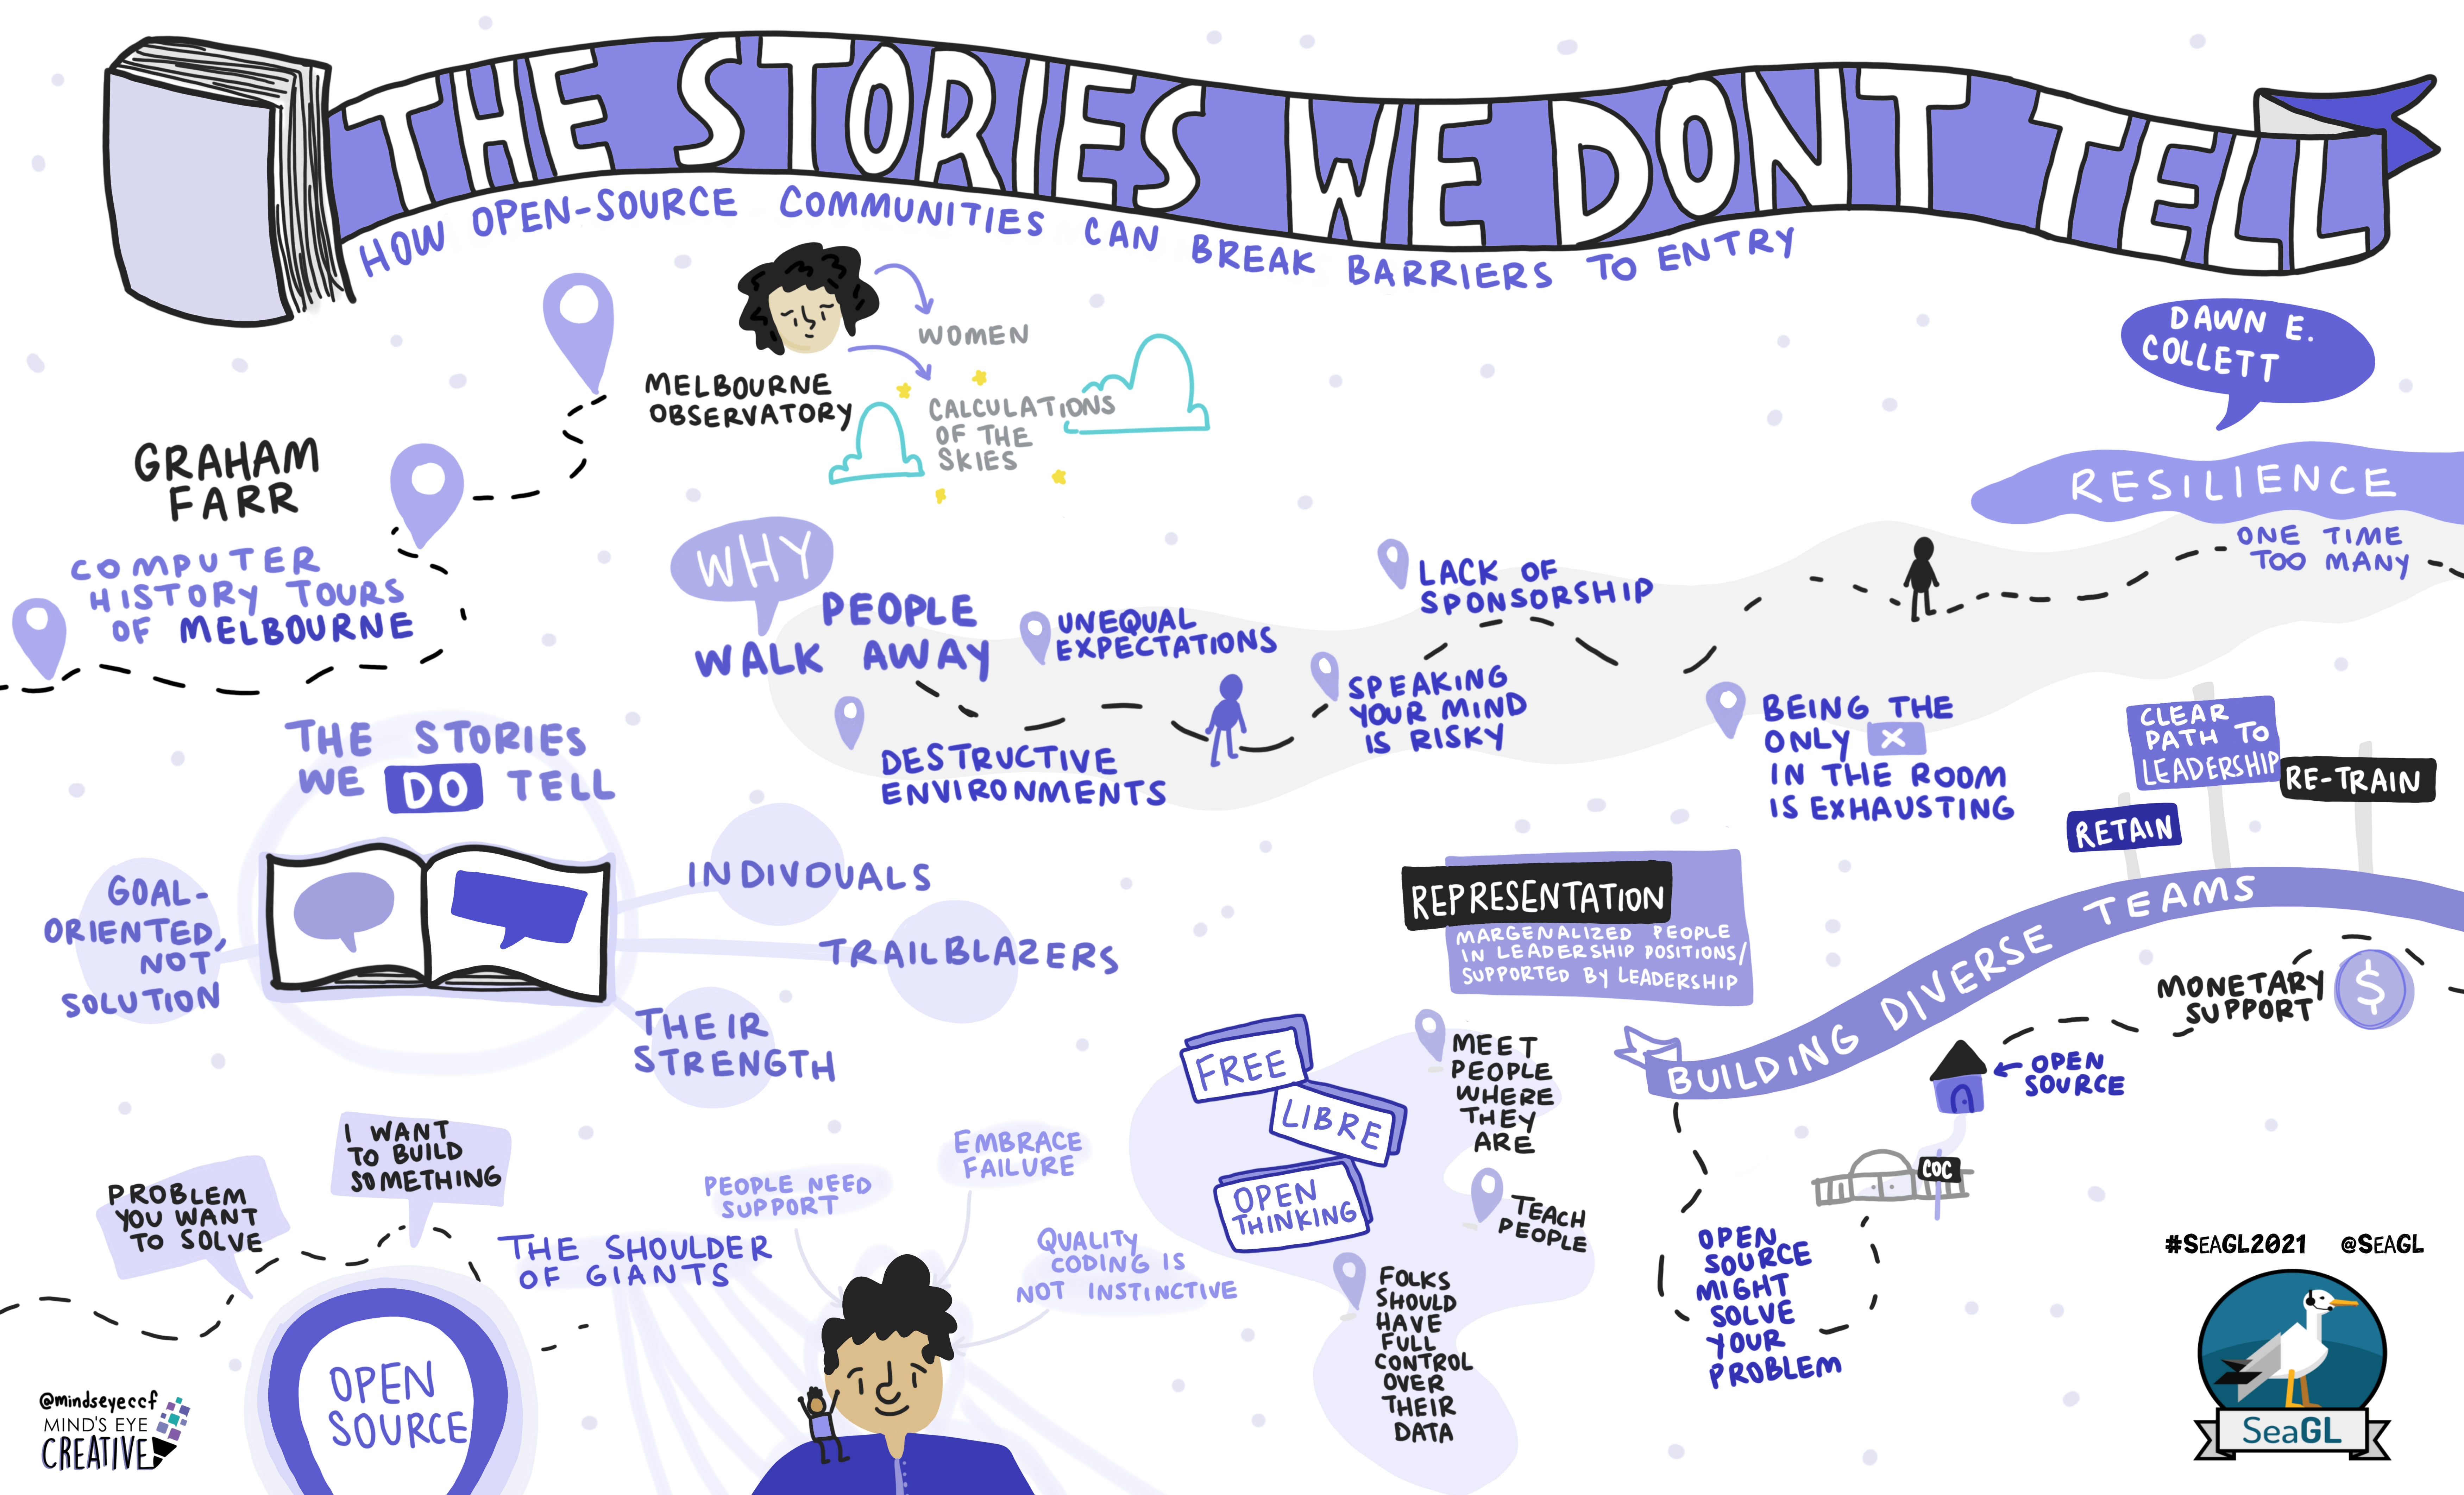 THE STORIES WE DONT TELL
HOW OPEN-SOURCE COMMUNITIES CAN BREAK BARRIERS TO ENTRY
DAWN E.
COLLETT
GRAHAM
FARR
COMPUTER
HISTORY TOURS
OF MELBOURNE
MELBOURNE
OBSERVATORY
WOMEN
CALCULATIONS
OF THE
SKIES
WHY
PEOPLE
WALK AWAY
UNEQUAL
EXPECTATIONS
DESTRUCTIVE
ENVIRONMENTS
LACK OF
SPONSORSHIP
SPEAKING
YOUR MIND
IS RISKY
BEING THE
ONLY X
IN THE ROOM
IS EXHAUSTING
RESILIENCE
ONE TIME
TOO MANY
THE STORIES
WE DO TELL
GOAL-
ORIENTED,
NOT
SOLUTION
INDIVDUALS
TRAILBLAZERS
THEIR
STRENGTH
PROBLEM
YOU WANT
TO SOLVE
I WANT
TO BUILD
SOMETHING
OPEN
SOURCE
THE SHOULDER
OF GIANTS
PEOPLE NEED
SUPPORT
EMBRACE
FAILURE
QUALITY
CODING IS
NOT INSTINCTIVE
FREE
LIBRE
OPEN
THINKING
MEET
PEOPLE
WHERE
THEY
ARE
TEACH
PEOPLE
FOLKS
SHOULD
HAVE
FULL
CONTROL
OVER
THEIR
DATA
REPRESENTATION
MARGENALIZED PEOPLE
IN LEADERSHIP POSITIONS/
SUPPORTED BY LEADERSHIP
BUILDING DIVERSE TEAMS
RETAIN
CLEAR
PATH TO
LEADERSHIP
RE-TRAIN
MONETARY
SUPPORT
$
OPEN
SOURCE
COC
OPEN
SOURCE
MIGHT
SOLVE
YOUR
PROBLEM
#SEAGL2021 @SEAGL
SeaGL
@mindseyeccf
MIND'S EYE
CREATIVE